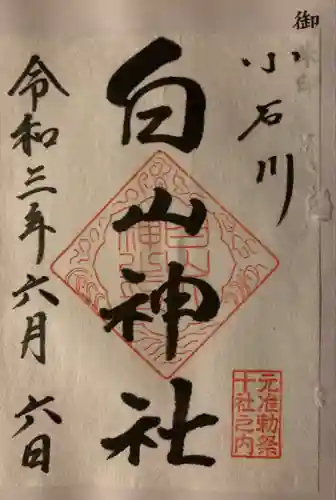 御
小石川
白山神社
令和三年六月六日
元准勅祭
十社之内